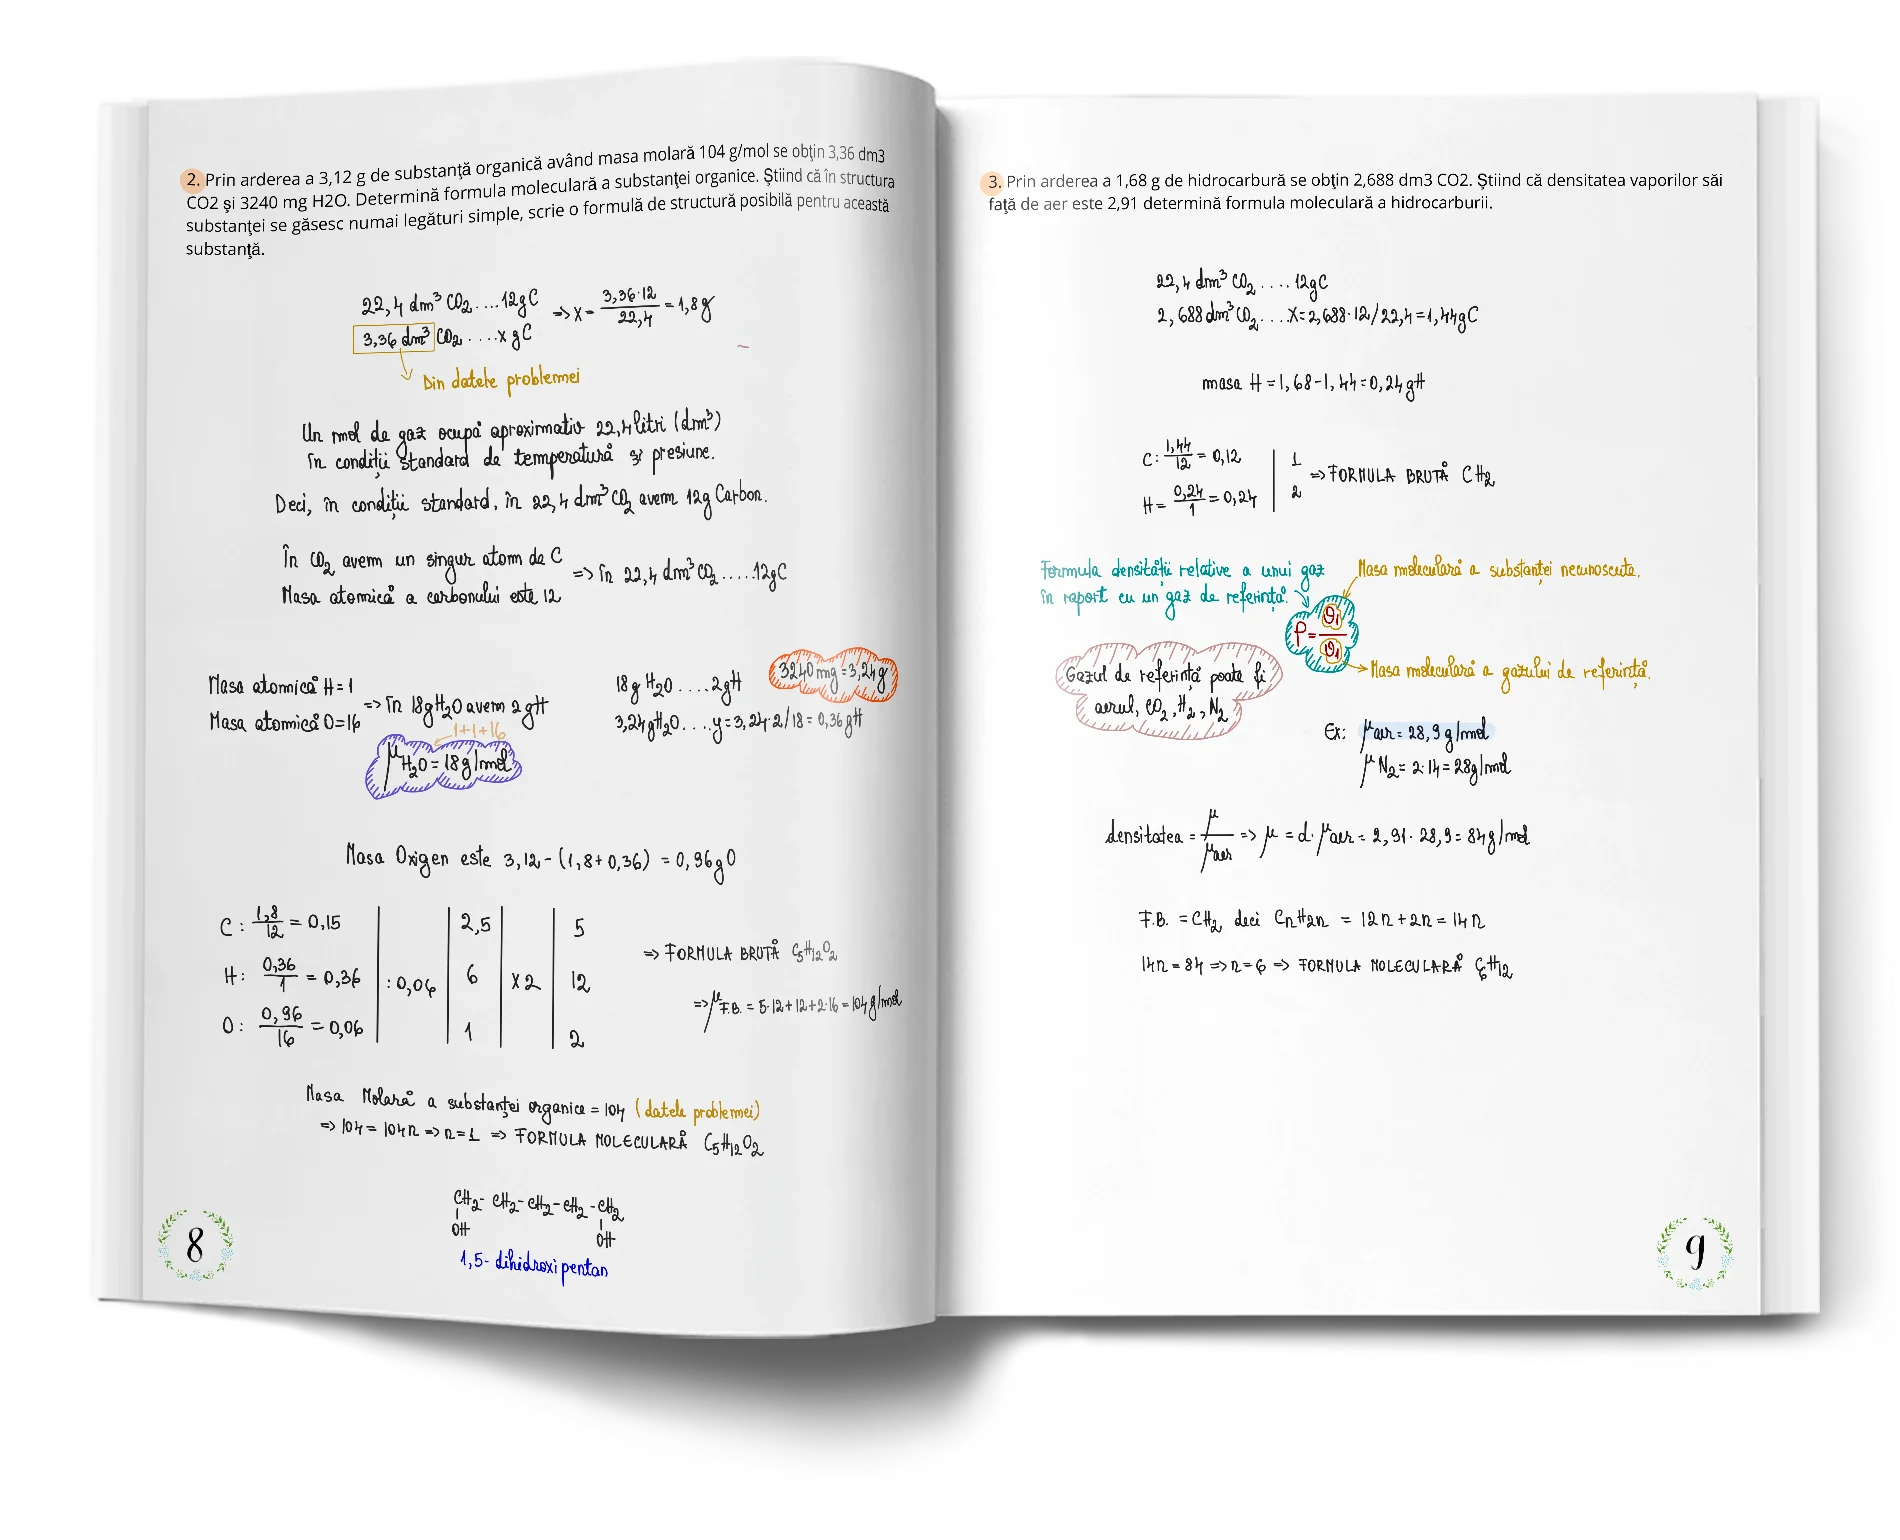 2. Prin arderea a 3,12 g de substanţă organică având masa molară 104 g/mol se obţin 3,36 dm3
CO2 şi 3240 mg H2O. Determină formula moleculară a substanţei organice. Ştiind că în structura
substanţei se găsesc numai legături simple, scrie o formulă de structură posibilă pentru această
substanţă.
22,4 dm³ CO₂ ....12gC => x = 3,36·12/22,4 = 1,8g
3,36 dm³ CO₂ ....x gC
Din datele problemei
Un mol de gaz ocupă aproximativ 22,4 litri (dm³)
în condiții standard de temperatură și presiune.
Deci, în condiții standard, în 22,4 dm³ CO₂ avem 12g Carbon.
În CO₂ avem un singur atom de C
Masa atomică a carbonului este 12
=> în 22,4 dm³ CO₂ .....12gC
Masa atomică H=1
Masa atomică O=16
=> în 18gH₂O avem 2gH
1+1+16
μH₂O = 18g/mol
3240mg=3,24g
18g H₂O ....2gH
3,24gH₂O ...y=3,24·2/18=0,36gH
Masa Oxigen este 3,12-(1,8+0,36) = 0,96gO
C: 1,8/12 = 0,15 | | 2,5 | | 5
H: 0,36/1 = 0,36 | :0,06 | 6 | x2 | 12
O: 0,96/16 = 0,06 | | 1 | | 2
=> FORMULA BRUTĂ C₅H₁₂O₂
=> μF.B. = 5·12+12+2·16=104g/mol
Masa Molară a substanței organice = 104 (datele problemei)
=> 104 = 104n => n=1 => FORMULA MOLECULARĂ C₅H₁₂O₂
CH₂- CH₂- CH₂- CH₂ -CH₂
OH OH
1,5- dihidroxi pentan
8
3. Prin arderea a 1,68 g de hidrocarbură se obţin 2,688 dm3 CO2. Ştiind că densitatea vaporilor săi
faţă de aer este 2,91 determină formula moleculară a hidrocarburii.
22,4 dm³ CO₂ .... 12gC
2,688 dm³ CO₂...X=2,688·12/22,4=1,44gC
masa H = 1,68-1,44=0,24gH
C: 1,44/12 = 0,12 | 1
H= 0,24/1 = 0,24 | 2
=> FORMULA BRUTĂ CH₂
Formula densității relative a unui gaz
în raport cu un gaz de referință.
Masa moleculară a substanței necunoscute.
Masa moleculară a gazului de referință.
Gazul de referință poate fi
aerul, CO₂, H₂, N₂
Ex: μaer = 28,9 g/mol
μN₂ = 2·14 = 28g/mol
densitatea = μ/μaer => μ = d·μaer = 2,91·28,9 = 84g/mol
F.B. = CH₂ deci CnH2n = 12n + 2n = 14n
14n = 84 => n=6 => FORMULA MOLECULARĂ C₆H₁₂
9